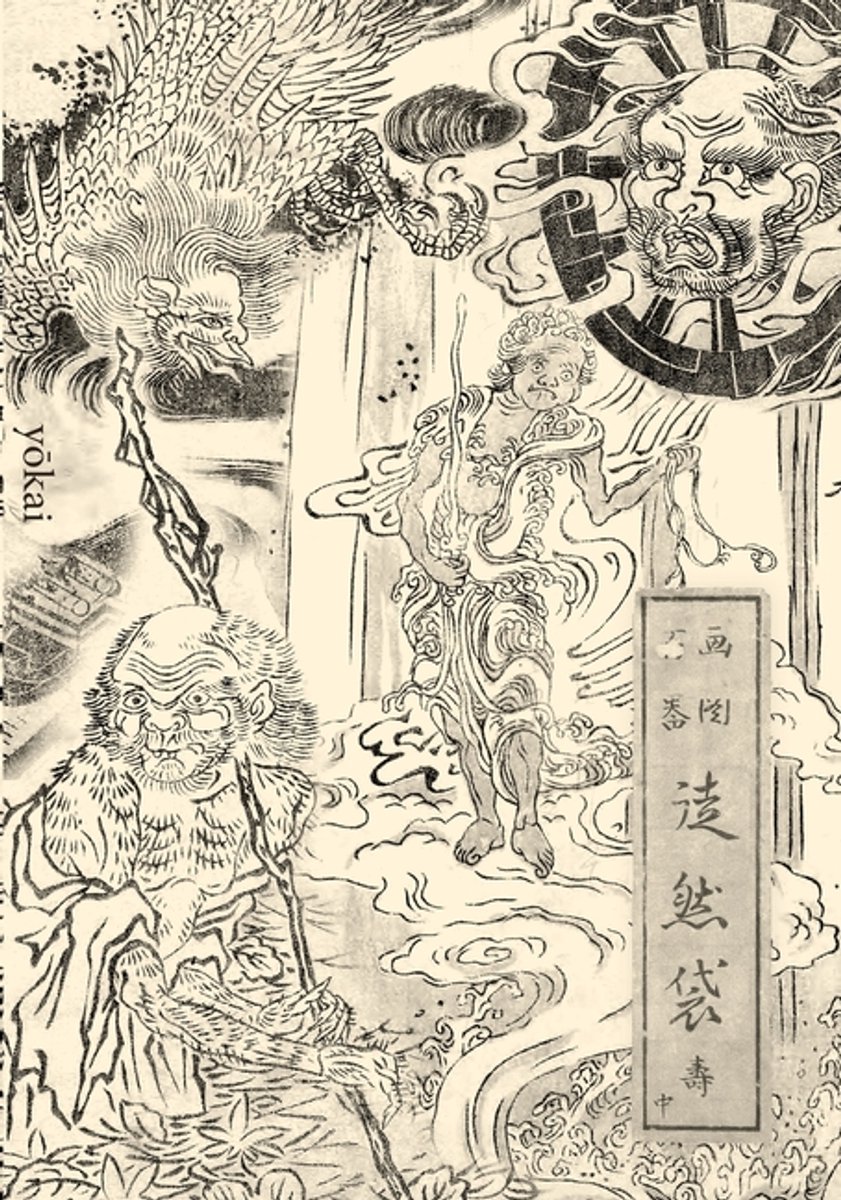 yōkai
画図
百器
徒然袋
壽
中